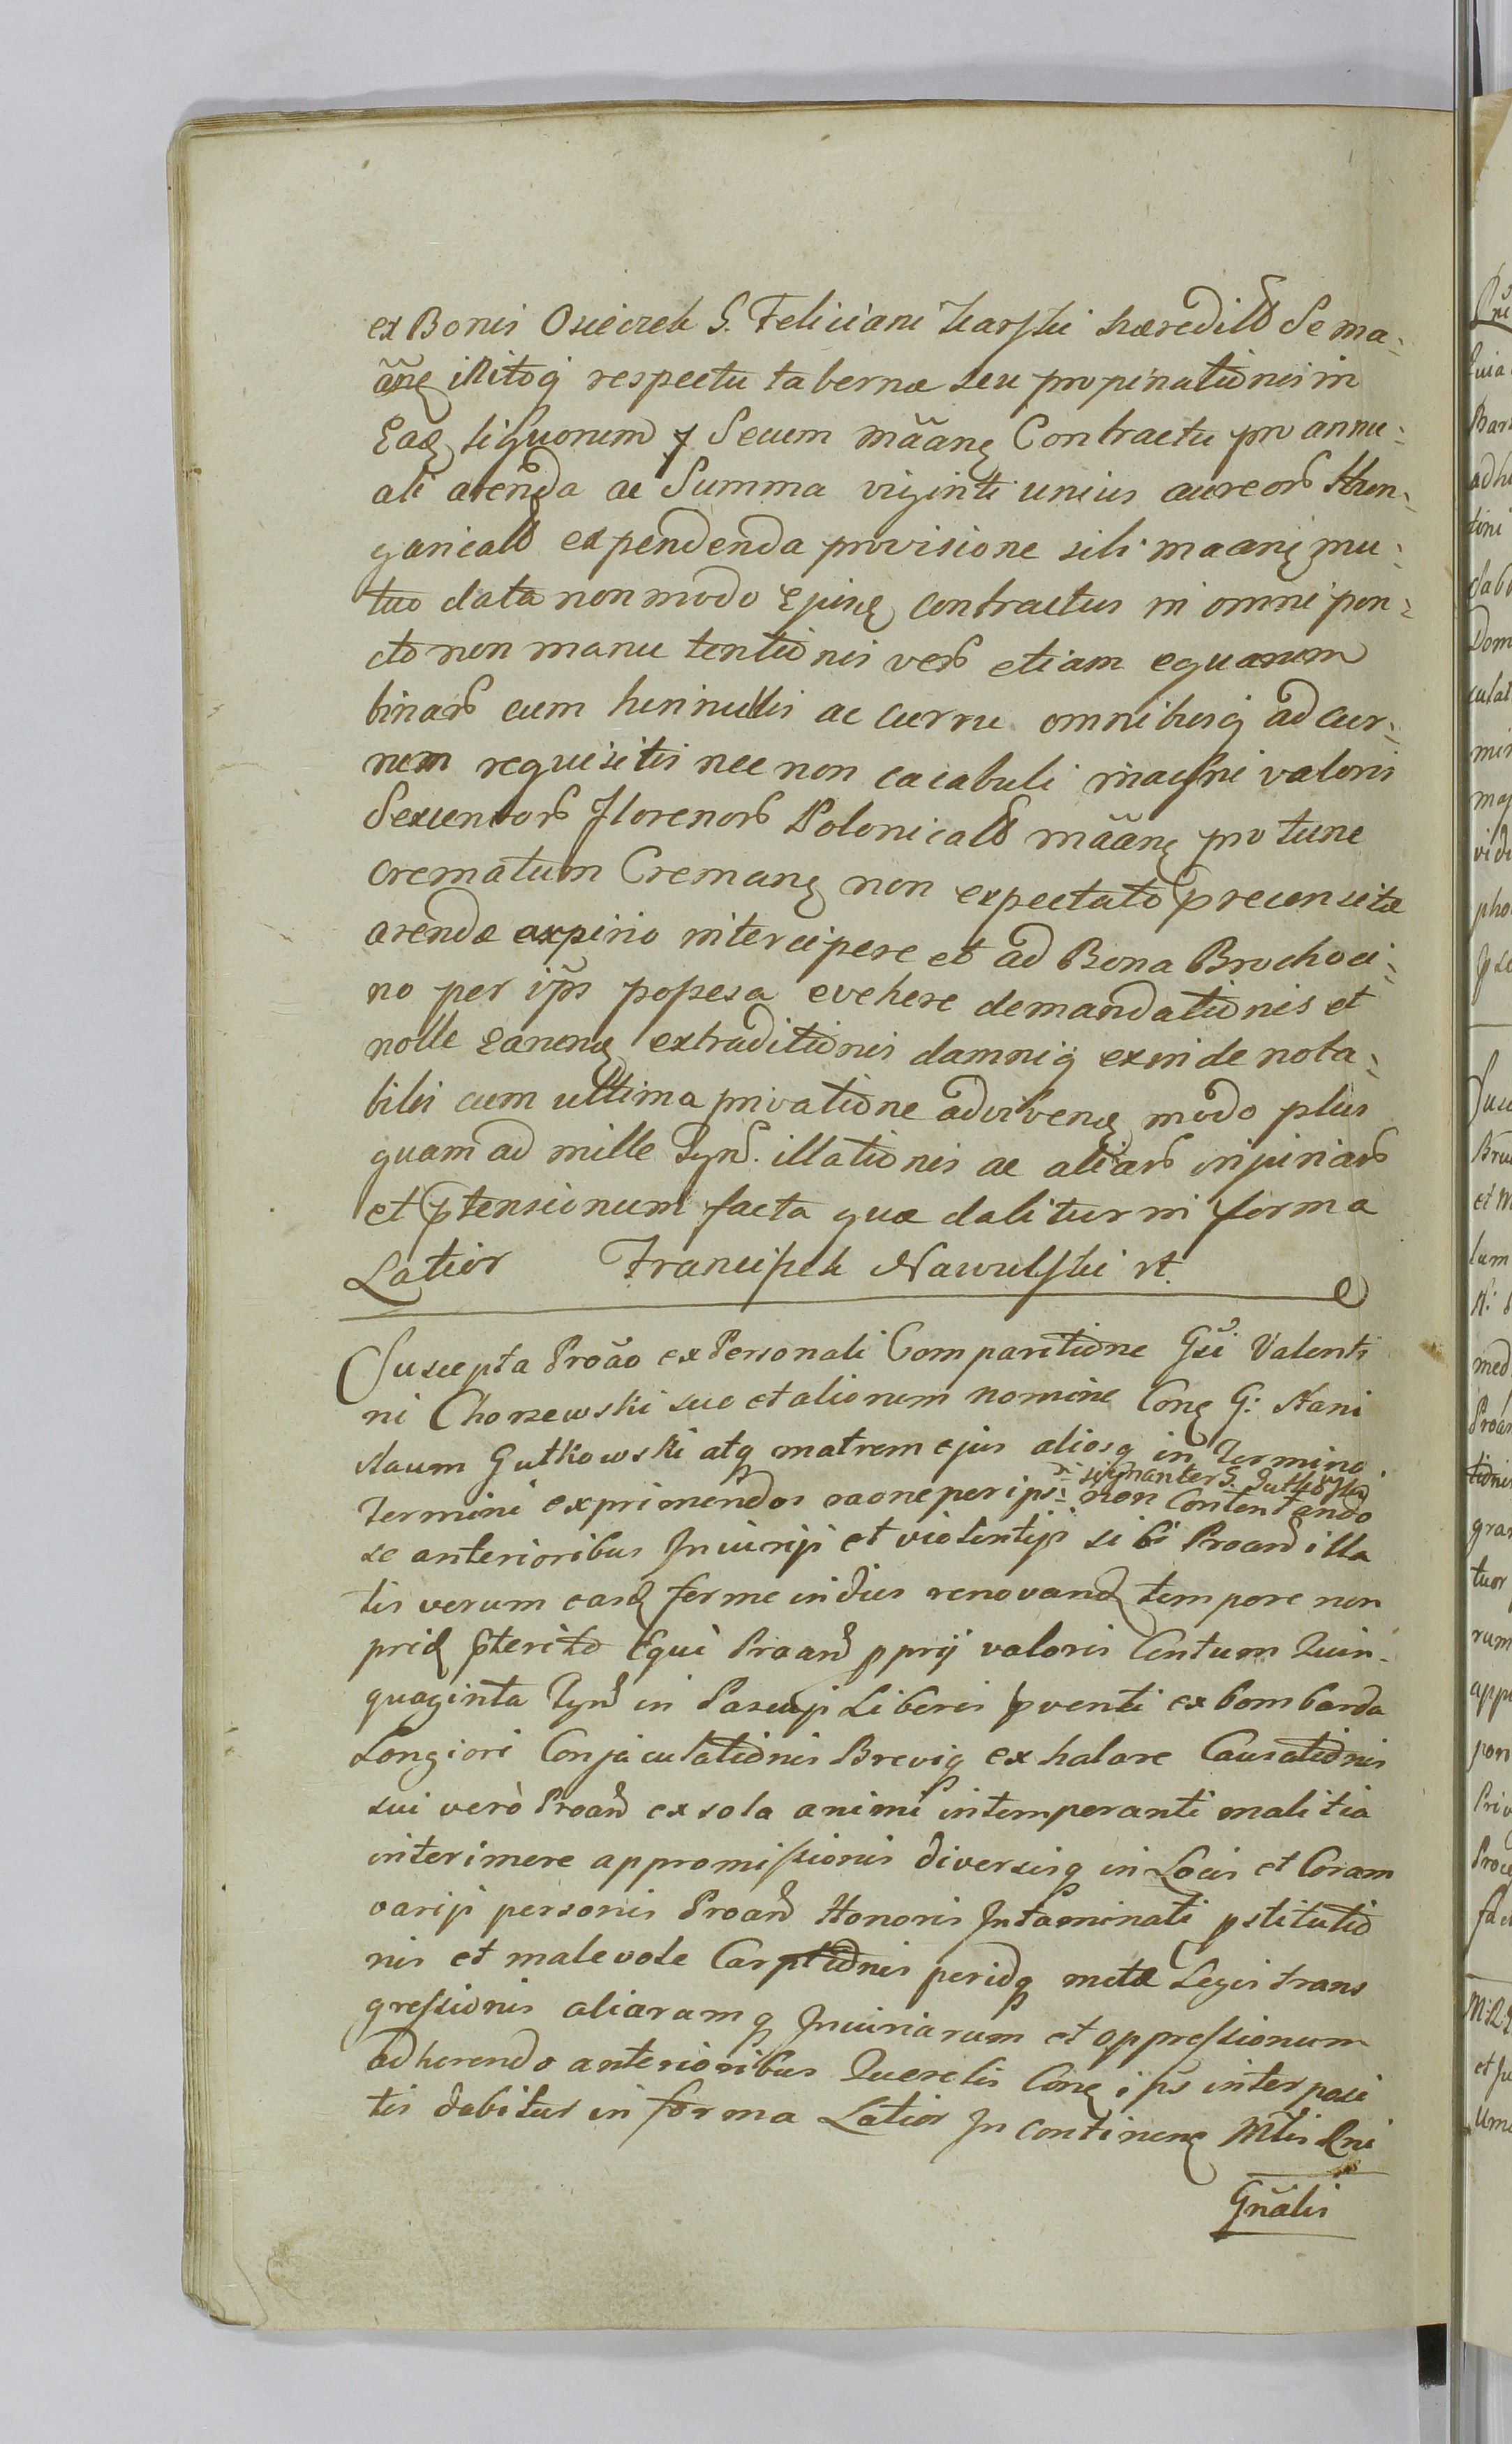 ex Bonis Osieczek G. Feliciani Karski hæredibs Se ma-
ãnę initoq respectu tabernæ seu propinationis in
Eadę liquorum p Secum mãanę Contractu pro annu-
ali arenda ac Summa viginti unius aureors Hun-
garicalium expendenda provisione sibi maanę mu-
tuo data non modo Ejusdę contractus in omni pun-
cto non manu tentionis vers etiam equarum
binars cum hinnullis ac curru omnibusq ad cur-
rum requisitis nec non cacabuli magni valoris
Sexcentors Florenors Polonicalium mãanę pro tunc
crematum Cremanę non expectato precensitæ
arendæ expirio intercipere et ad Bona Brochoci-
no per ips possessa evehere demandationis et
nolle earundę extraditionis damniq exinde nota-
bilis cum ultima privatione advivenę modo plus
quam ad mille Tyn. illationis ac aliars injuriars
et ptensionum facta quæ dabitur in forma
Latior Franciszek Nawulski rt
Suscepta Proão ex Personali Comparitione Gsi Valenti
ni Chorzewski suo et aliorum nomine Conę G: Stani
slaum Gutkowski atq matrem ejus aliosq in Termino
signanter G. Gutkowski
Termini exprimendos raone per ips: non Contentando
se anterioribus Injurijs et violentijs sibi Proand illa
tis verum easdę ferme indies renovandę tempore non
pridę pterito Equi Proand pprij valoris Centum Quin-
quaginta Tynf in Pascuijs Liberis pventi ex bombarda
Longiori Conjaculationis Breviq exhalare Causationis
sui verò Proand ex sola animi intemperanti malitia
interimere appromissionis diversisq in Locis et Coram
varijs personis Proand Honoris Intaminati pstitutio
nis et malevole Carptionis peridq metæ Legis trans
gressionis aliarumq Injuriarum et oppressionum
adherendo anterioribus Querelis Conę ips interposi
tis dabitur in forma Latior In continenę Mtis Rni
Gnãlis